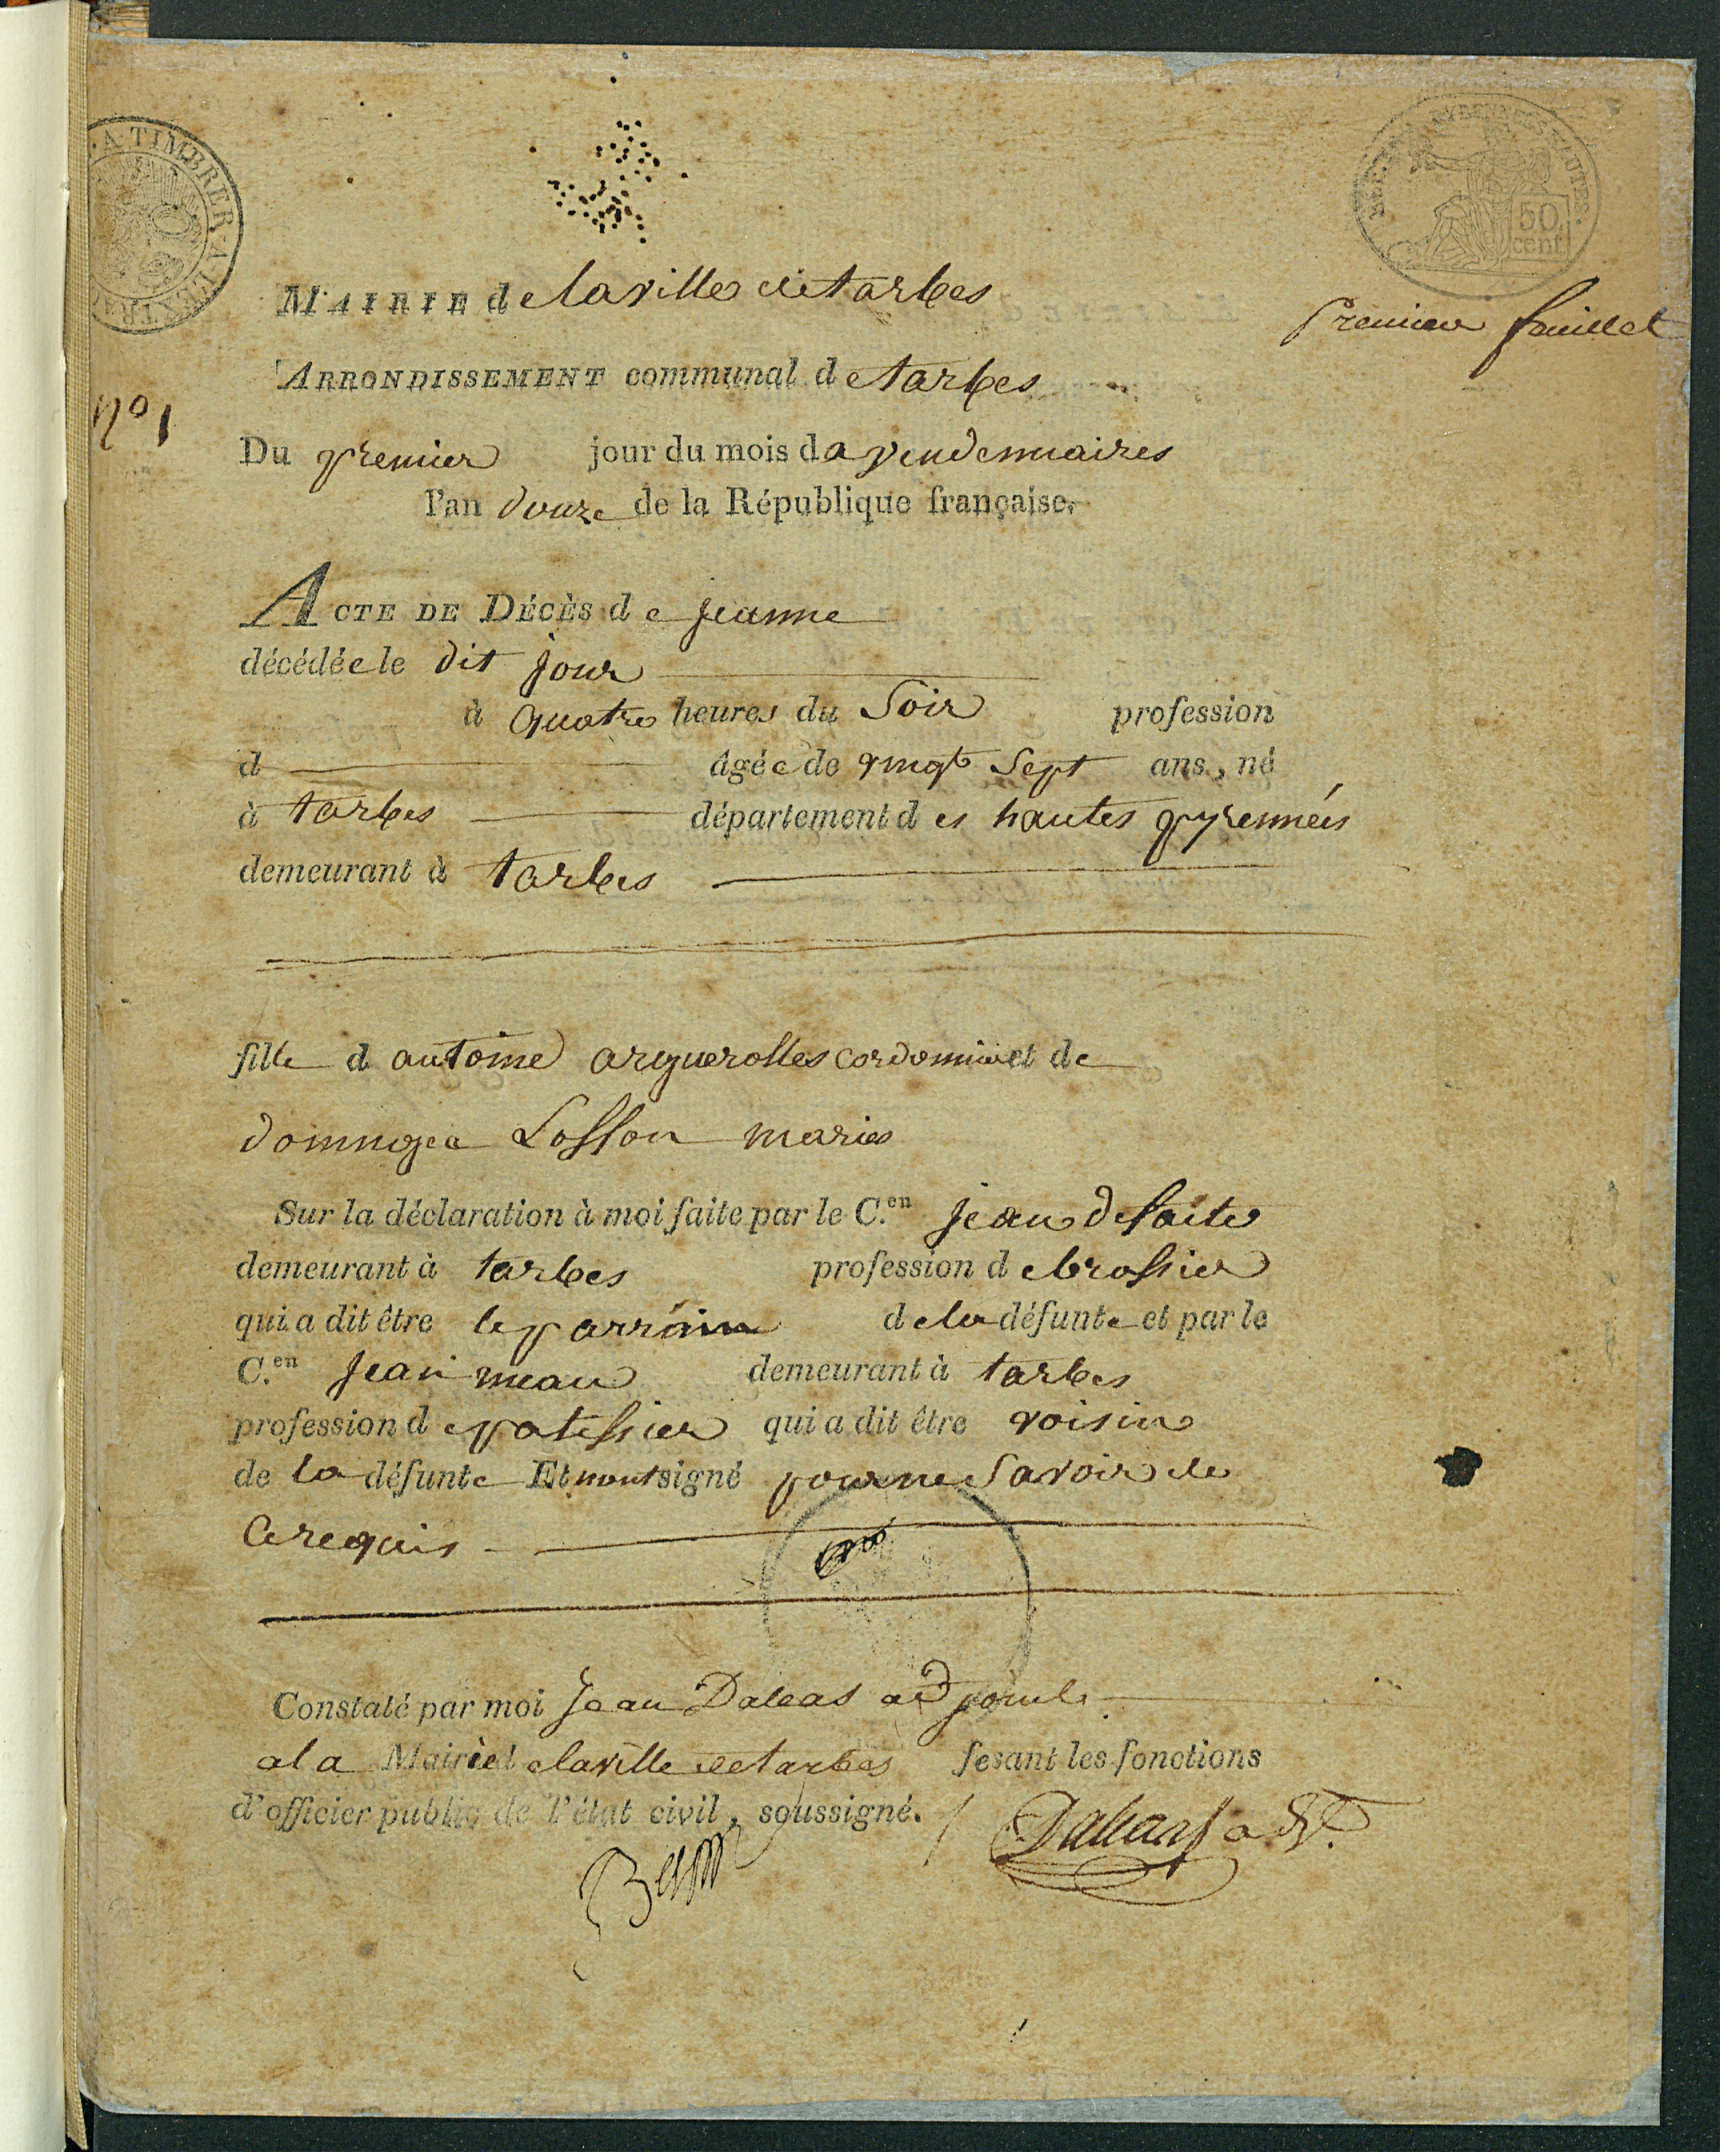 A TIMBRER A L'EXTRA
50
cent
MAIRIE de la ville de tarbes
premier feuillet
ARRONDISSEMENT communal de tarbes
nº 1
Du premier jour du mois de vendemiaire
l'an douze de la République française.
ACTE DE Décès de jeanne
décédée le dit jour
à quatre heures du Soir profession
d âgée de vingt Sept ans, né
à tarbes département des hautes pyrennées
demeurant à tarbes
fille d antoine arguerolles cordonnier et de
domngea Losson maries
Sur la déclaration à moi faite par le C.en jean desaite
demeurant à tarbes profession de brossier
qui a dit être le parrain de la défunte et par le
C.en jean meau demeurant à tarbes
profession de patissier qui a dit être voisin
de la défunte Et nont signé pour ne Savoir de
ce requis
Constaté par moi Jean Daleas adjoint
a la Mairie de la ville de tarbes fesant les fonctions
d'officier public de l'état civil, soussigné.
Daleas adjt